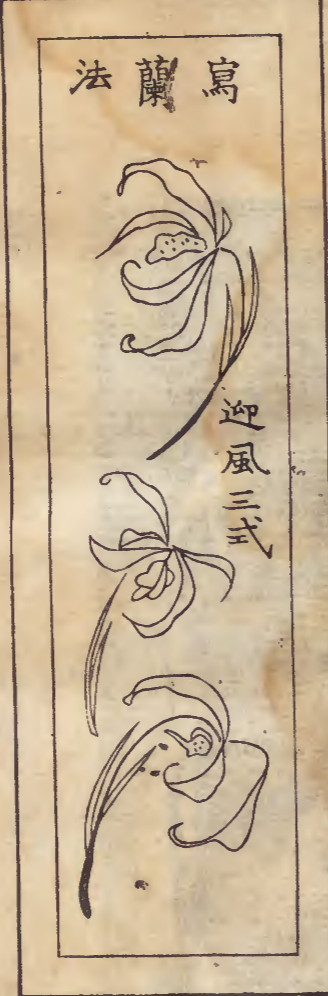 寫蘭法
迎風三式